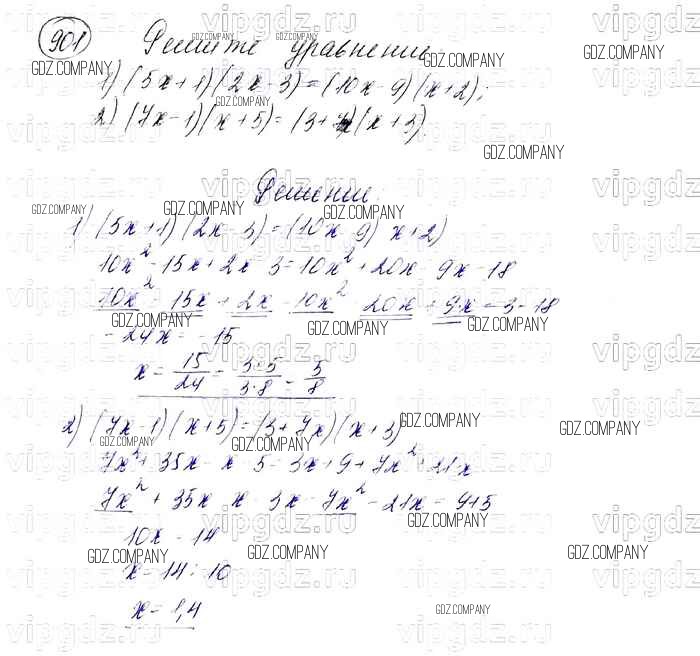 901 Решите уравнение
1) (5x+1)(2x-3)=(10x-9)(x+2);
2) (7x-1)(x+5)=(3+7x)(x+3)
Решение
1) (5x+1)(2x-3)=(10x-9)(x+2)
10x²-15x+2x-3=10x²+20x-9x-18
10x²-15x+2x-10x²-20x+9x=3-18
-24x=-15
x=15/24=3·5/3·8=5/8
2) (7x-1)(x+5)=(3+7x)(x+3)
7x²+35x-x-5=3x+9+7x²+21x
7x²+35x-x-3x-7x²-21x=9+5
10x=14
x=14:10
x=1,4
GDZ.COMPANY
vipgdz.ru